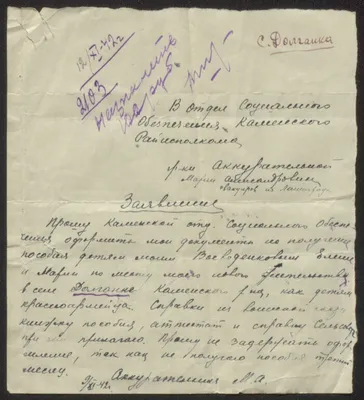 12/XI-42 г.
3103
назначить
с. Долганка
В отдел Социального
Обеспечения Каменского
Райисполкома
гр-ки Аккурательной
Марии Александровны
эвакуиров. из Ленинграда
Заявление
Прошу Каменский отд. Социального Обеспе-
чения оформить мои документы на получение
пособия детям моим
и Марии по месту моего нового жительства
в селе Долганка Каменского р-на, как детям
красноармейца. Справки из воинской
книжку пособия, аттестат и справку Сельсовета
при сём прилагаю. Прошу не задержать офор-
мление, так как не получаю пособия третий
месяц.
9/XI-42. Аккурательная М.А.